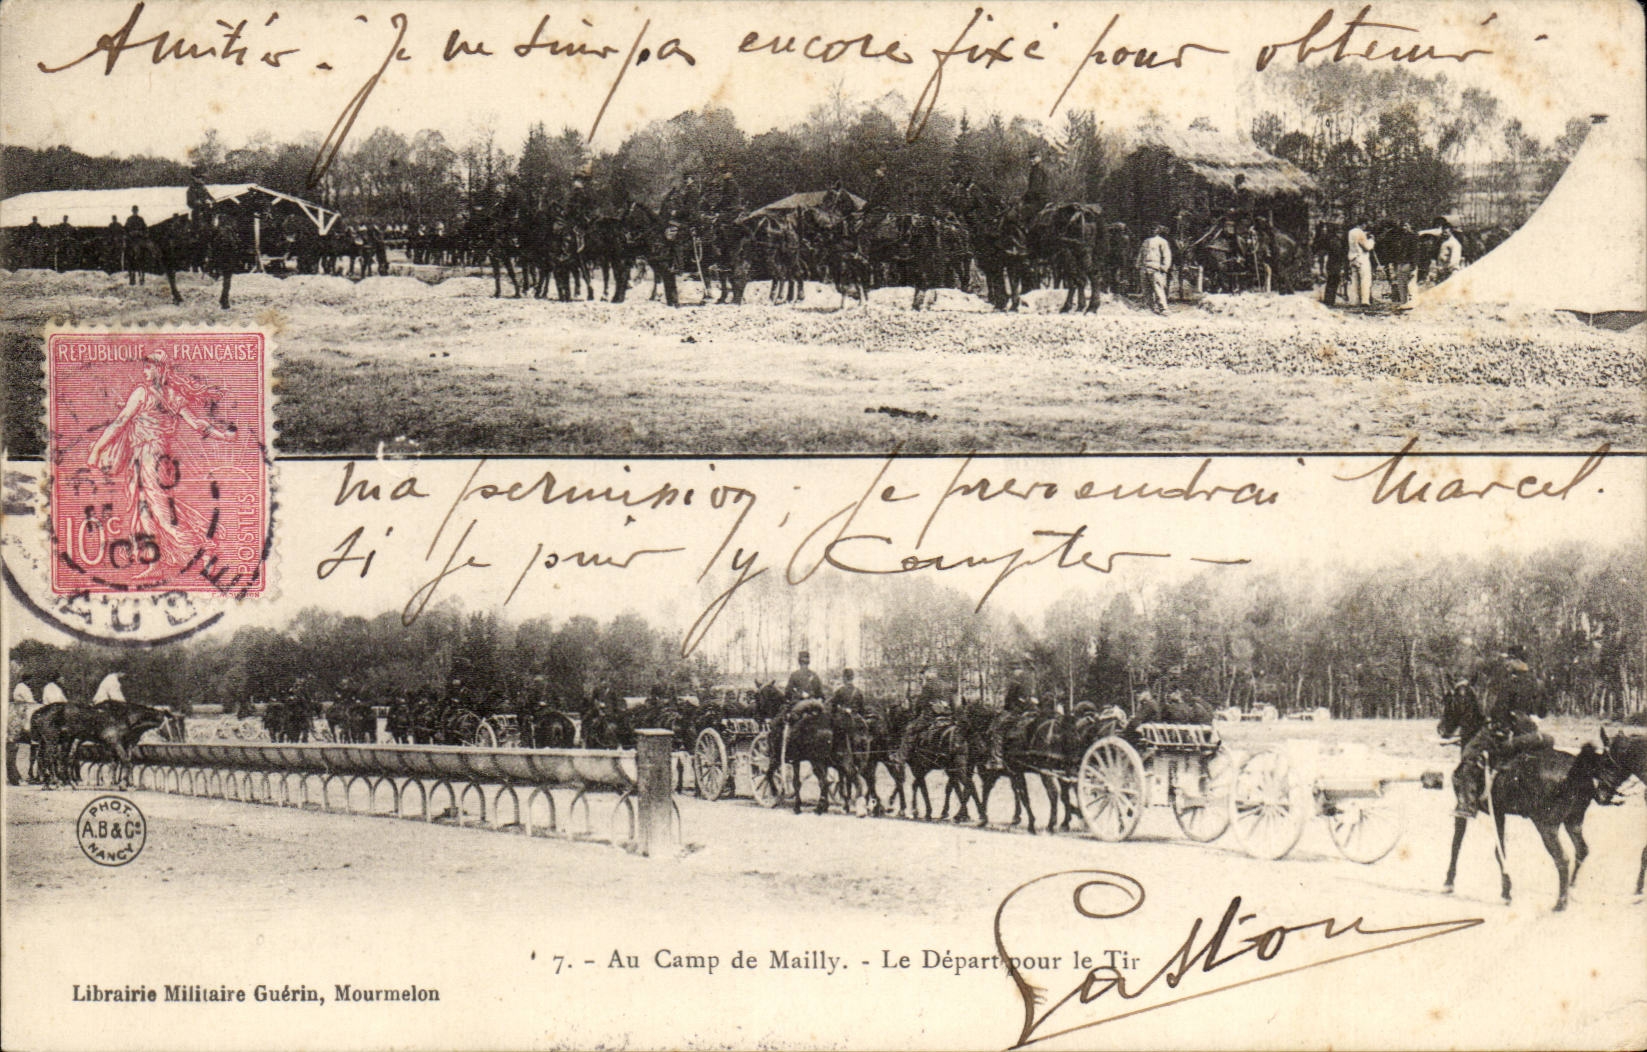 Amitiés. Je ne suis pas encore fixé pour obtenir
RÉPUBLIQUE FRANÇAISE
10c
POSTES
10
MAI
05
AUBE
ma permission; je previendrai Marcel.
si je puis y compter —
PHOT.
A.B & Cie
NANCY
Gaston
7. - Au Camp de Mailly. - Le Départ pour le Tir
Librairie Militaire Guérin, Mourmelon